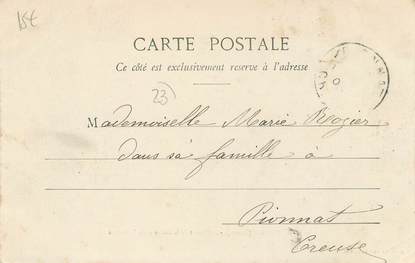 15€
CARTE POSTALE
Ce côté est exclusivement reserve à l'adresse
23)
Mademoiselle Marie Rogier
dans sa famille à
Pionnat
Creuse